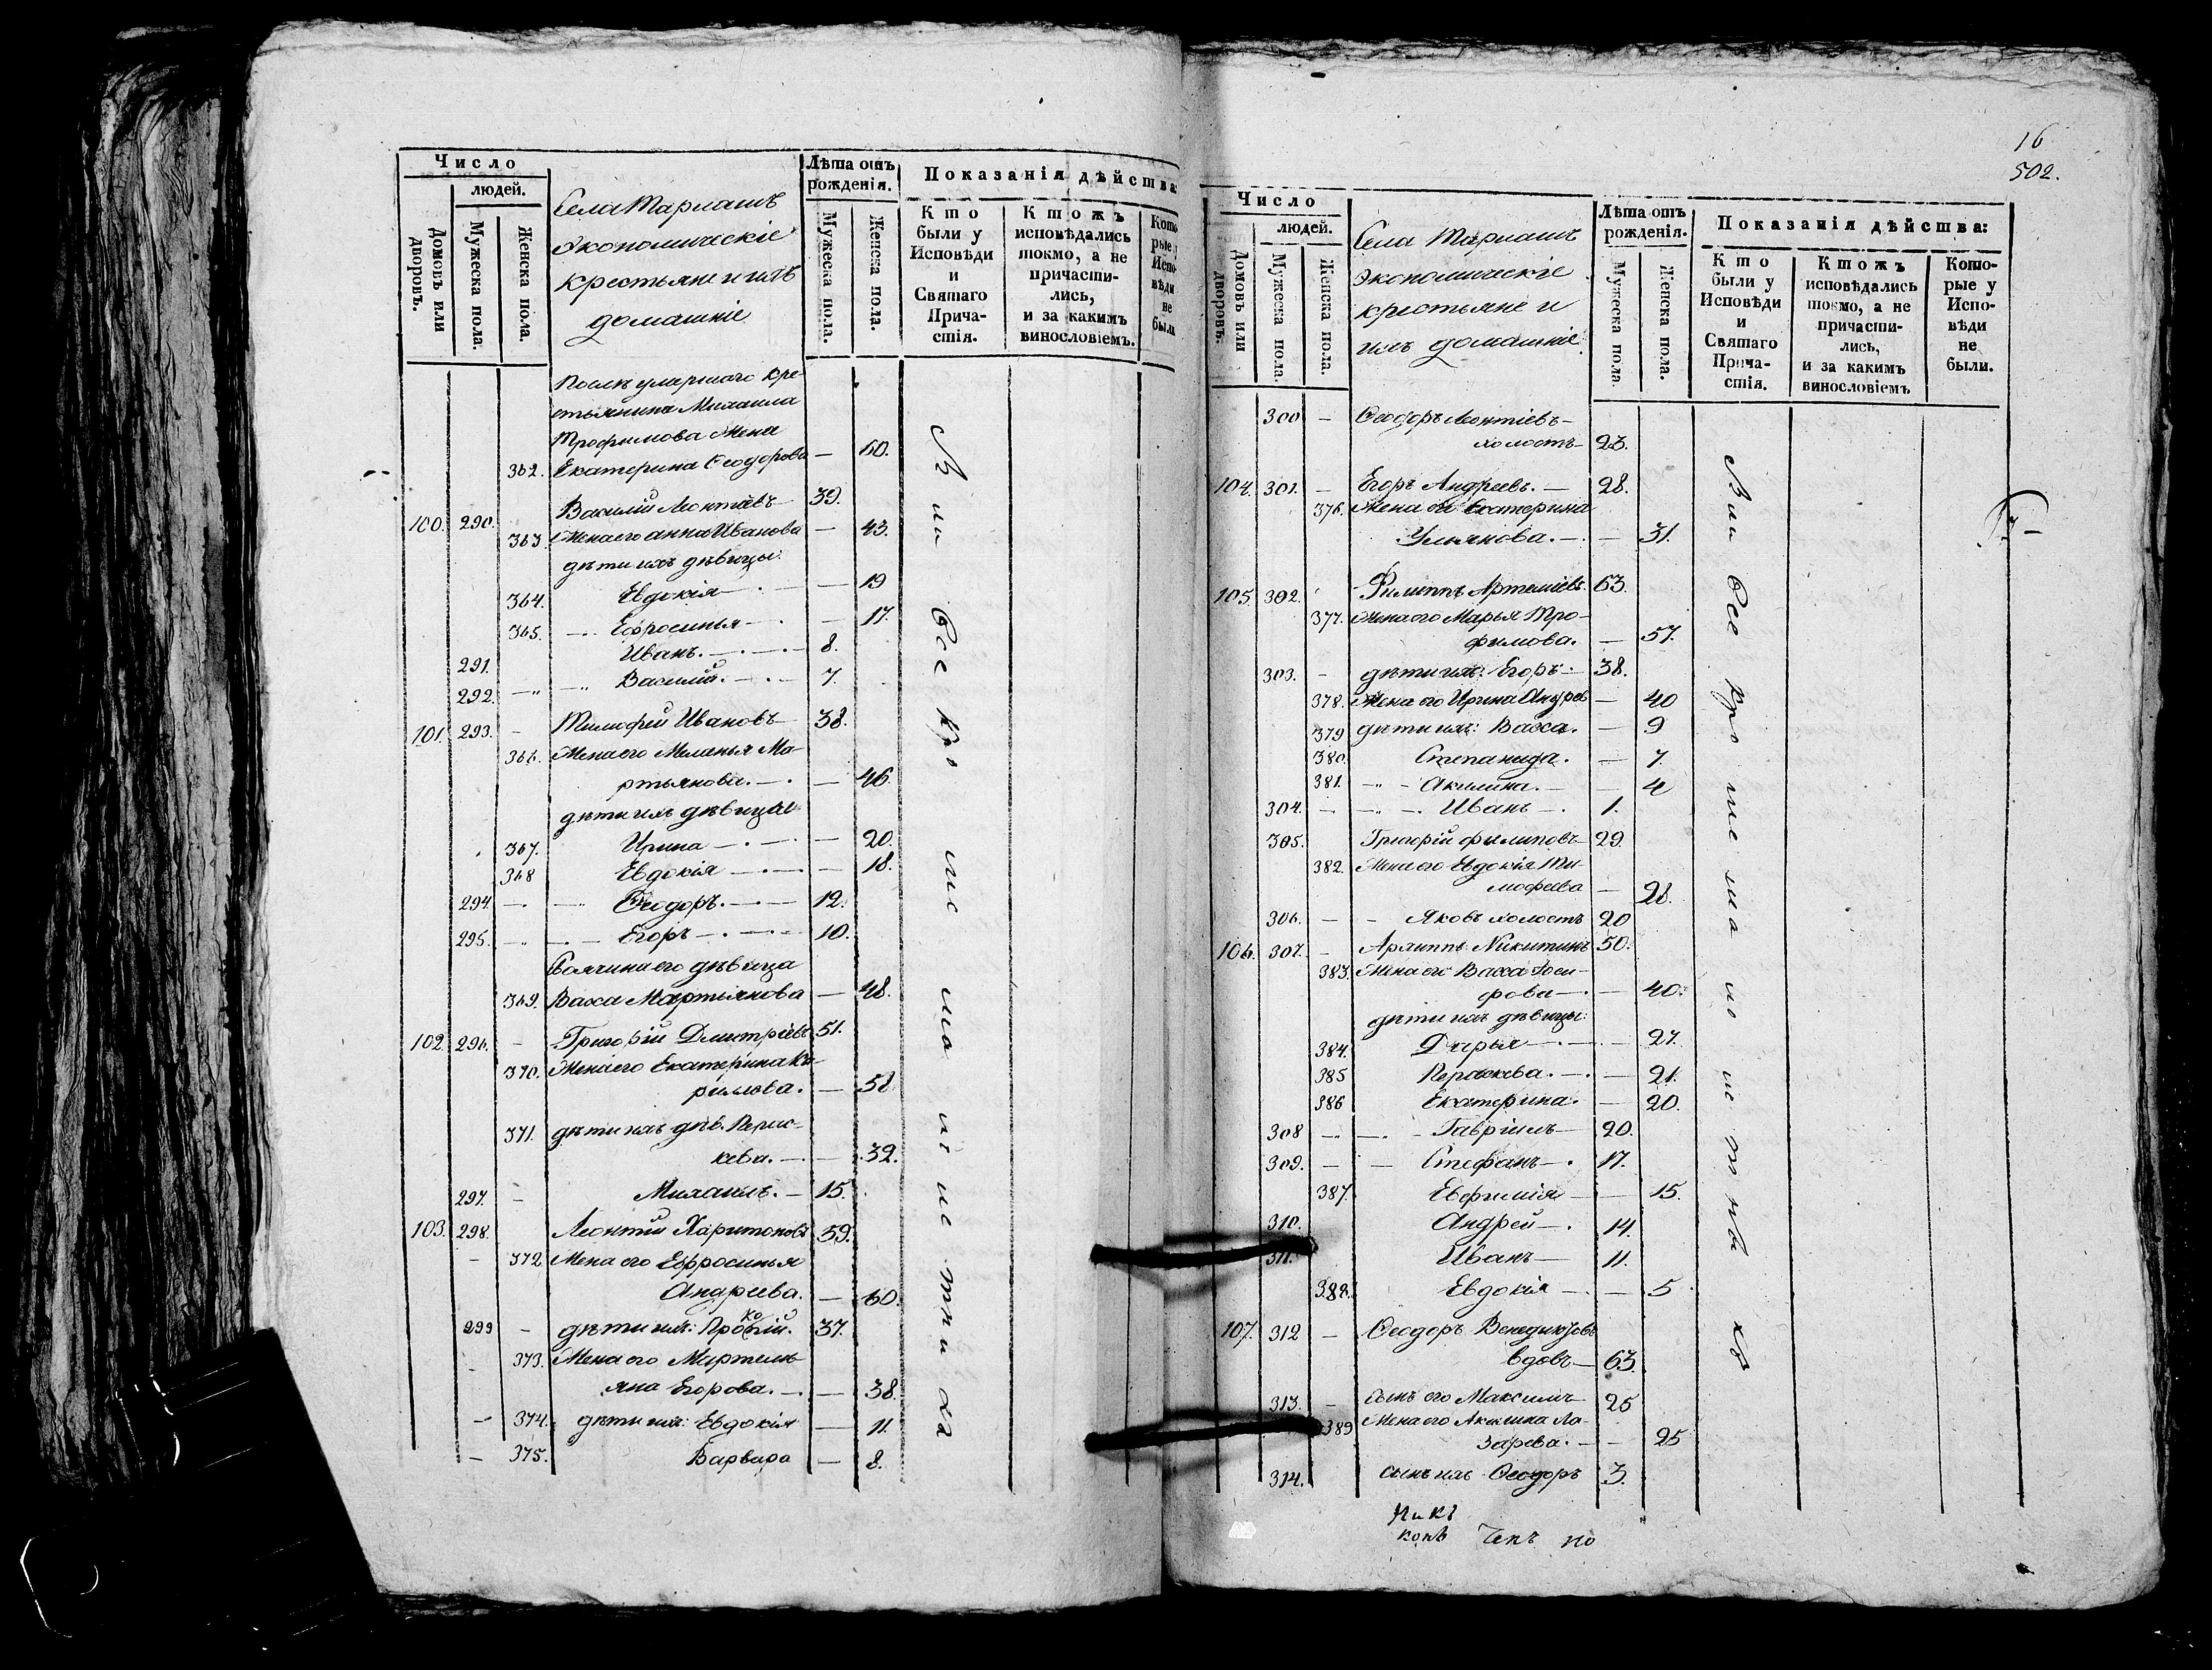 Число
людей.
Домовъ или дворовъ.
Мужеска пола.
Женска пола.
Села Тармашъ
экономическіе
крестьяне и ихъ
домашніе
Лѣта отъ рожденія.
Мужеска пола.
Женска пола.
Показанія дѣйства:
Кто были у Исповѣди и Святаго Причастія.
Ктожъ исповѣдались токмо, а не причастились, и за какимъ винословіемъ.
Которые у Исповѣди не были
После умершаго кре-
стьянина Михаила
Трофимова жена
362. Екатерина Ѳеодорова — 60.
100. 290. Василій Леонтіевъ — 39.
363. Жена его Анна Иванова — 43.
дѣти ихъ дѣвицы:
364. Евдокія — 19
365. Ефросинья — 17.
291. Иванъ. — 8.
292. Василій. — 7.
101. 293. — Тимофей Ивановъ 38.
366. Жена его Меланья Ма-
ртьянова. — 46.
дѣти ихъ дѣвицы
367. Ирина — 20.
368 Евдокія — 18.
294. Ѳеодоръ. — 12.
295. Егоръ — 10.
Своячина его дѣвица
369. Васса Мартьянова — 48.
102. 296. — Григорій Дмитріевъ 51.
370. Жена его Екатерина
— 58
371. дѣти ихъ дѣв. Парас-
кева. — 32.
297. — Михаилъ. — 15.
103. 298. Леонтій Харитоновъ 59.
— 372 Жена его Ефросинья
Андреева. — 60.
299 — дѣти ихъ: Прокопій. 37.
373. Жена его
Егорова. — 38.
— 374. дѣти ихъ: Евдокія — 11.
— 375. Варвара — 8.
Вси все кро ме
16
502.
Число
людей.
Домовъ или дворовъ.
Мужеска пола.
Женска пола.
Села Тармашъ
экономическіе
крестьяне и
ихъ домашніе
Лѣта отъ рожденія.
Мужеска пола.
Женска пола.
Показанія дѣйства:
Кто были у Исповѣди и Святаго Причастія.
Ктожъ исповѣдались токмо, а не причастились, и за какимъ винословіемъ
Которые у Исповѣди не были.
300 — Ѳеодоръ Леонтіевъ —
холостъ — 23.
104. 301. — Егоръ Андреевъ. — 28.
376. Жена его Екатерина
Ульянова. — 31.
105. 302. Филиппъ Артеміевъ. 63.
377. Жена его Марья Тро-
фимова. — 57.
303. — дѣти ихъ: Егоръ — 38.
378. Жена его Ирина Андрев — 40
379 дѣти ихъ: Васса. — 9
380. Степанида. — 7.
381. Акилина. — 4
304. Иванъ — 1.
305. Григорій Филиповъ 29.
382. Жена его Евдокія Ти-
мофеева — 28.
306. — Яковъ холостъ 20
106. 307. — Архиппъ Никитинъ 50.
383. Жена его Васса Іоси-
фова — 40.
дѣти ихъ дѣвицы:
384. Дарья — 27.
385 Параскева. — 21.
386 Екатерина. — 20.
308 — Гавріилъ — 20.
309. — Стефанъ — 17.
387. Евфимія — 15.
310. Андрей — 14.
311. Иванъ — 11.
388. Евдокія — 5
107. 312 — Ѳеодоръ Венедиктовъ
вдовъ — 63.
313. — Сынъ его Максимъ — 25
389 Жена его Акилина Ла-
зарева. — 25
314. сынъ ихъ Ѳеодоръ 3.
Вси все кро ме